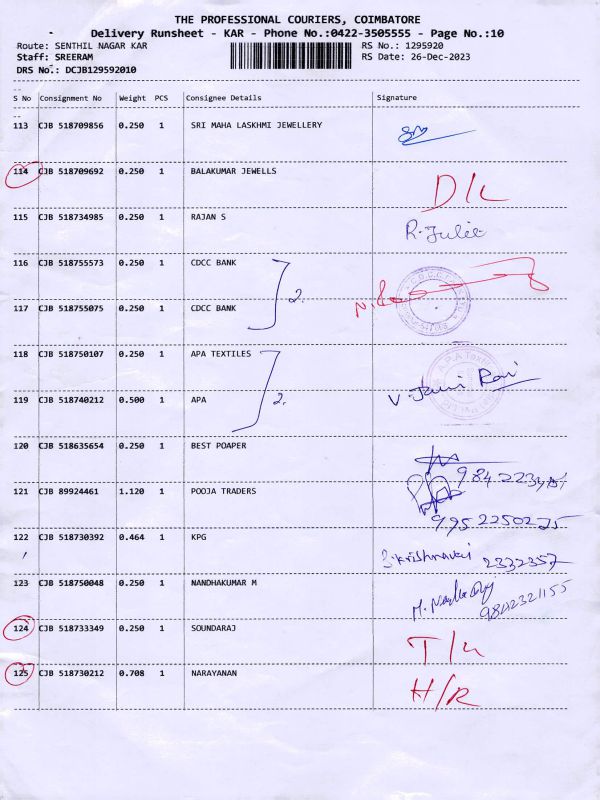 THE PROFESSIONAL COURIERS, COIMBATORE
Delivery Runsheet - KAR - Phone No.:0422-3505555 - Page No.:10
Route: SENTHIL NAGAR KAR RS No.: 1295920
Staff: SREERAM RS Date: 26-Dec-2023
DRS No.: DCJB129592010
S No Consignment No Weight PCS Consignee Details Signature
113 CJB 518709856 0.250 1 SRI MAHA LASKHMI JEWELLERY
114 CJB 518709692 0.250 1 BALAKUMAR JEWELLS D/L
115 CJB 518734985 0.250 1 RAJAN S R. Julie
116 CJB 518755573 0.250 1 CDCC BANK
2.
117 CJB 518755075 0.250 1 CDCC BANK
118 CJB 518750107 0.250 1 APA TEXTILES
119 CJB 518740212 0.500 1 APA 2. V.
120 CJB 518635654 0.250 1 BEST POAPER
121 CJB 89924461 1.120 1 POOJA TRADERS
9952250275
122 CJB 518730392 0.464 1 KPG 2332357
123 CJB 518750048 0.250 1 NANDHAKUMAR M
9842321155
124 CJB 518733349 0.250 1 SOUNDARAJ
125 CJB 518730212 0.708 1 NARAYANAN H/R